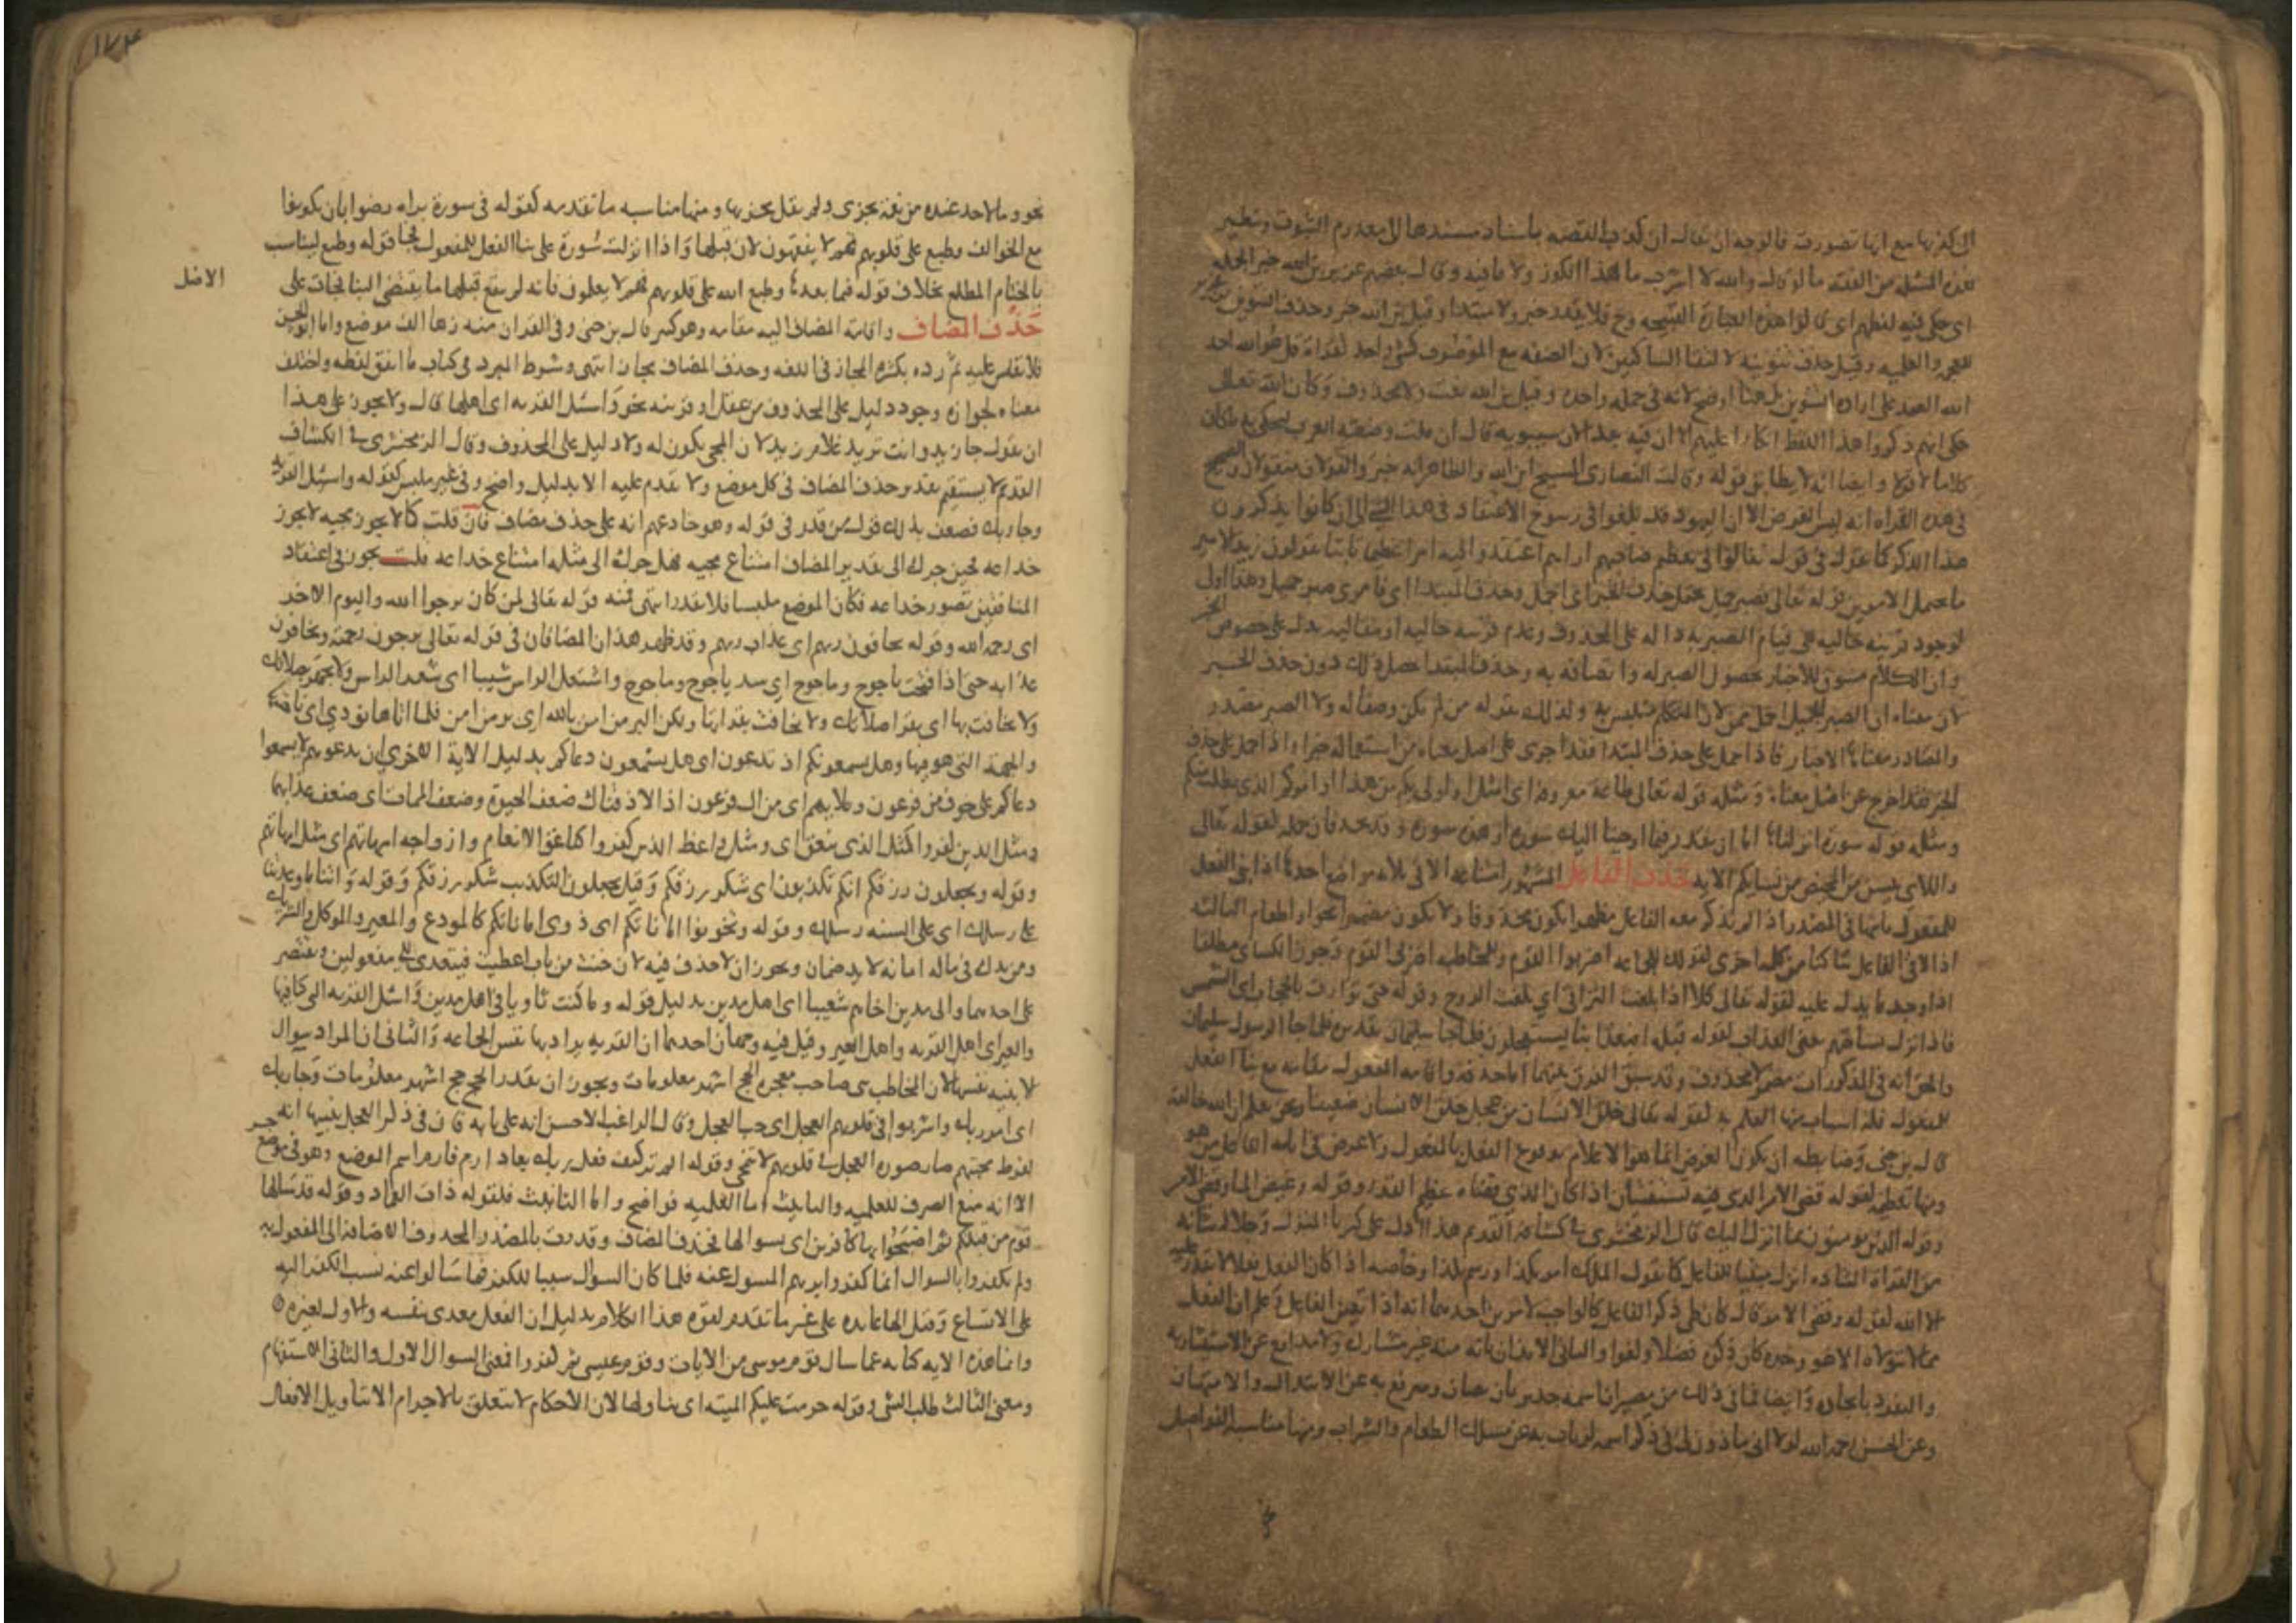 لان كذبها مع انها تصورت فالوجه ان يقال ان كذب القصه باسناد مسندها الى معدوم الثبوت ونظير
هذه المسئلة من الفقه ما لو قال والله لا اشرب ماء هذا الكوز ولا ماء فيه وقال بعضهم عزير بن الله خبر الجمله
اى حكى فيه لفظهم اى قالوا هذه العبارة القبيحه وح فلا يقدر خبر ولا مبتدا وقيل بن الله خبر وحذف التنوين من عزير
للعجمه والعلميه وقيل حذف تنوينه لالتقا الساكنين لان الصفه مع الموصوف كشى واحد لقراة قل هو الله احد
الله الصمد على ارادة التنوين بل هنا اوضح لانه فى جمله واحده وقيل بن الله نعت ولا محذوف وكان الله تعالى
حكى انهم ذكروا هذا اللفظ انكارا عليهم الا ان فيه خلالان سيبويه قال ان قلت وضعته العرب لتحكى به ما كان
كلاما لا قولا وايضا انه لا يطابق قوله وقالت النصارى المسيح ابن الله والظاهر انه خبر والقولان منقولان والصحيح
فى هذه القراة انه ليس الغرض الا ان اليهود قد بلغوا فى رسوخ الاعتقاد فى هذا الشى الى ان كانوا يذكرون
هذا الذكر كما تقول فى قوم تغالوا فى تعظيم صاحبهم اراهم اعتقدوا فيه امرا عظيما ثابتا يقولون زيد الامير
ما يحتمل الامرين قوله تعالى فصبر جميل يحتمل حذف الخبر اى اجمل وحذف المبتدا اى فامرى صبر جميل وهذا اولى
لوجود قرينه حاليه هى قيام الصبر به داله على المحذوف وعدم قرينه حاليه او مقاليه تدل على خصوص الخبر
وان الكلام مسوق للاخبار بحصول الصبر له واتصافه به وحذف المبتدا يحصل ذلك دون حذف الخبر
لان معناه ان الصبر الجميل اجمل ممن لان المتكلم متلبس به ولذلك يقوله من لم يكن وصفا له ولا الصبر مصدر
والمصادر معناها الاخبار فاذا حمل على حذف المبتدا فقد اجرى على اصل معناه من استعماله خبرا واذا حمل على حذف
الخبر فقد اخرج عن اصل معناه ومثله قوله تعالى طاعة معروفة اى امثل او اولى بكم من هذا او امركم الذى يطلب منكم
ومثله قوله سورة انزلناها اما ان يقدر فيما اوحينا اليك سورة او هذه سورة وقد يحذفان جمله لقوله تعالى
واللاى يئسن من المحيض من نسايكم الايه حذف الفاعل المشهور امتناعه الا فى ثلاثه مواضع احدها اذا بنى الفعل
للمفعول ثانيها فى المصدر اذا لم يذكر معه الفاعل مظهرا يكون محذوفا ولا يكون مضمرا نحو او اطعام الثالثه
اذا لاقى الفاعل ساكنا من كلمه اخرى لقولك للجماعه اضربوا القوم وللمخاطبه اضربى القوم وجوز الكسائى مطلقا
اذا وجد ما يدل عليه لقوله تعالى كلا اذا بلغت التراقى اي بلغت الروح وقوله حتى توارت بالحجاب اى الشمس
فاذا نزل بساحتهم يعنى العذاب لقوله قبله افبعذابنا يستعجلون فلما جا سليمان تقديره فلما جا الرسول سليمان
والحق انه فى المذكورات مضمر لا محذوف وقد سبق الفرق بينهما اما حذفه واقامه المفعول مقامه مع بنا الفعل
للمفعول فله اسباب منها العلم به لقوله تعالى خلق الانسان من عجل خلق الانسان ضعيفا ونحن نعلم ان الله خالقه
قال بن جنى وضابطه ان يكون الغرض انما هو الاعلام بوقوع الفعل بالمفعول ولا غرض فى ابانه الفاعل من هو
ومنها تعظيمه لقوله قضى الامر الذى فيه تستفتيان اذا كان الذى قضاه عظيم القدر وقوله وغيض الما وقضى الامر
وقوله الذين يومنون بما انزل اليك قال الزمخشرى فى كشافه القديم هذا ادل على كبريا المنزل وجلالة شانه
من القراة الشاذه انزل مبنيا للفاعل كما تقول الملك امر بكذا ورسم بكذا وخاصه اذا كان الفعل فعلا لا يقدر عليه
الا الله لقوله وقضى الامر قال كان طى ذكر الفاعل كالواجب لامرين احدهما انه اذا تعين الفاعل وعلم ان الفعل
مما لا يتولاه الا هو وحده كان ذكره فضلا ولغوا والثانى الايذان بانه منه غير مشارك ولا مدافع عن الاستيثار به
والتفرد بايجاده وايضا فما فى ذلك من مصير ان اسمه جدير بان يصان ويرتفع به عن الابتذال والامتهان
وعن الحسن رحمه الله لولا انى ماذون لى فى ذكر اسمه لربات به عن مسلك الطعام والشراب ومنها مناسبه الفواصل
١٧٤
نحو وما لاحد عنده من نعمة تجزى ولم يقل يجزيها ومنها مناسبه ما تقدمه كقوله فى سورة براه رضوا بان يكونوا
مع الخوالف وطبع على قلوبهم فهم لا يفقهون لان قبلها واذا انزلت سورة على بنا الفعل للمفعول فجا قوله وطبع ليناسب
بالختام المطلع بخلاف قوله فيما بعدها وطبع الله على قلوبهم فهم لا يعلمون فانه لم يقع قبلها ما يقتضى البنا فجات على
الاصل
حذف المضاف واقامة المضاف اليه مقامه وهو كثير قال بن جنى وفى القران منه زها الف موضع واما ابو الحسن
فلا يقيس عليه ثم رده بكثرة المجاز فى اللغه وحذف المضاف مجاز انتهى وشرط المبرد فى كتاب ما اتفق لفظه واختلف
معناه لجوازه وجود دليل على المحذوف من عقل او قرينه نحو واسئل القريه اى اهلها قال ولا يجوز على هذا
ان تقول جا زيد وانت تريد غلام زيد لان المجى يكون له ولا دليل على المحذوف وقال الزمخشرى فى الكشاف
القديم لا يستقيم تقدير حذف المضاف فى كل موضع ولا يقدم عليه الا بدليل واضح وفى غير ملبس كقوله واسئل القرية
وجا ربك فضعف بذلك قول من قدر فى قوله وهو خادعهم انه على حذف مضاف فان قلت كما لا يجوز مجيه لا يجوز
خداعه فحين جرك الى تقدير المضاف امتناع مجيه فهل جرك الى مثله امتناع خداعه قلت يجوز فى اعتقاد
المنافقين تصور خداعه فكان الموضع ملبسا فلا يقدر انتهى فمنه قوله تعالى لمن كان يرجوا الله واليوم الاخر
اى رحمه الله وقوله يخافون ربهم اى عذاب ربهم وقد ظهر هذان المضافان فى قوله تعالى يرجون رحمته ويخافون
عذابه حتى اذا فتحت ياجوج وماجوج اى سد ياجوج وماجوج واشتعل الراس شيبا اى شعر الراس ولا تجهر بصلاتك
ولا تخافت بها اى بقراة صلاتك ولا تخافت بقراتها ولكن البر من امن بالله اى بر من امن فلما اتاها نودي اى ناحيتها
والجهة التى هو فيها وهل يسمعونكم اذ تدعون اى هل يسمعون دعاكم بدليل الاية الاخري ان تدعوهم لا يسمعوا
دعاكم على خوف من فرعون وملايهم اى من ال فرعون اذا لاذقناك ضعف الحيوة وضعف الممات اى ضعف عذابهما
ومثل الذين كفروا كمثل الذى ينعق اى ومثل واعظ الذين كفروا كناعق الانعام وازواجه امهاتهم اى مثل امهاتهم
وقوله وتجعلون رزقكم انكم تكذبون اى شكر رزقكم وقيل تجعلون التكذيب شكر رزقكم وقوله واتنا ما وعدتنا
على رسلك اى على السنه رسلك وقوله وتخونوا اماناتكم اى ذوى اماناتكم كالمودع والمعير والموكل والشريك
ومن يدك فى ماله امانه لا يد ضمان ويجوز ان لا حذف فيه لان خنت من باب اعطيت فيتعدى الى مفعولين ويقتصر
على احدهما والى مدين اخاهم شعيبا اى اهل مدين بدليل قوله وما كنت ثاويا فى اهل مدين واسئل القريه التى كنا فيها
والعير اى اهل القريه واهل العير وقيل فيه وجهان احدهما ان القريه يراد بها نفس الجماعه والثانى ان المراد سوال
الابنيه نفسها لان المخاطب نبى صاحب معجزه الحج اشهر معلومات ويجوز ان يقدر الحج حج اشهر معلومات وجا ربك
اى امر ربك واشربوا فى قلوبهم العجل اى حب العجل وقال الراغب الاحسن انه على بابه فان فى ذكر العجل تنبيها انه
لفرط محبتهم صار صورة العجل فى قلوبهم لا تنمحى وقوله الم تر كيف فعل ربك بعاد ارم فارم اسم لموضع وهو فى موضع جر
الا انه منع الصرف للعلميه والتانيث اما العلميه فواضح واما التانيث فلقوله ذات العماد وقوله قد سالها
قوم من قبلكم ثم اصبحوا بها كافرين اى بسوالها فحذف المضاف وقدرت بالمصدر المحذوف الاضافة الى المفعول به
ولم يكفروا بالسوال انما كفروا بربهم المسول عنه فلما كان السوال سببا للكفر فيما سالوا عنه نسب الكفر اليه
على الاتساع وقيل الها عايده على غير ما تقدم لقوة هذا الكلام بدليل ان الفعل يعدى بنفسه والاول لغيره
وانما هذه الايه كنايه عما سال قوم موسى من الايات وقوم عيسى ثم كفروا فمعنى السوال الاول والثانى الاستفهام
ومعنى الثالث طلب الشى وقوله حرمت عليكم الميته اى تناولها لان الاحكام لا تتعلق بالاجرام الا بتاويل الافعال